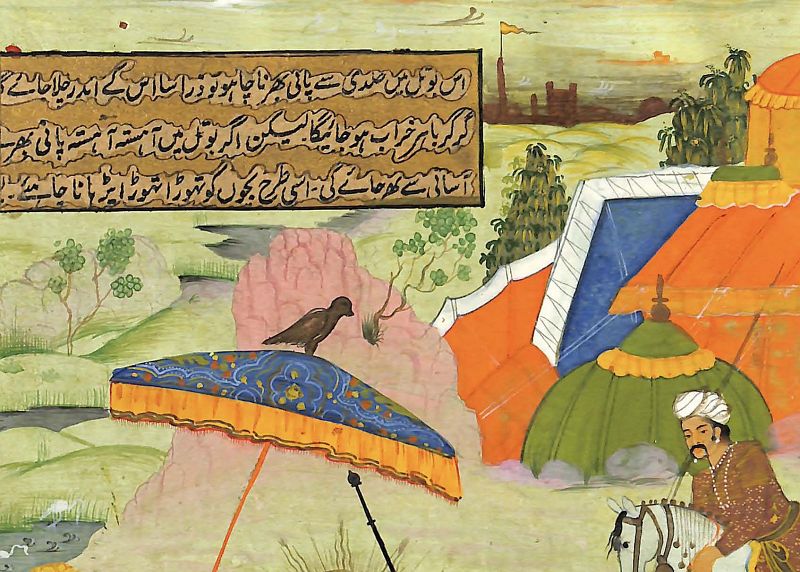 اس بوتل میں جلدی سے پانی بھرنا چاہو تو ذرا سا اس کے اندر چلا جائے گا
گر کر باہر خراب ہو جائیگا لیکن اگر بوتل میں آہستہ آہستہ پانی بھرے
آسانی سے بھر جائے گی۔ اسی طرح بچوں کو تھوڑا تھوڑا پڑھانا چاہئے